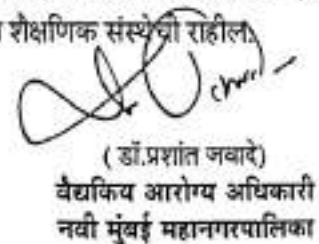 शैक्षणिक संस्थेची राहील.
( डॉ.प्रशांत जवादे)
वैद्यकिय आरोग्य अधिकारी
नवी मुंबई महानगरपालिका